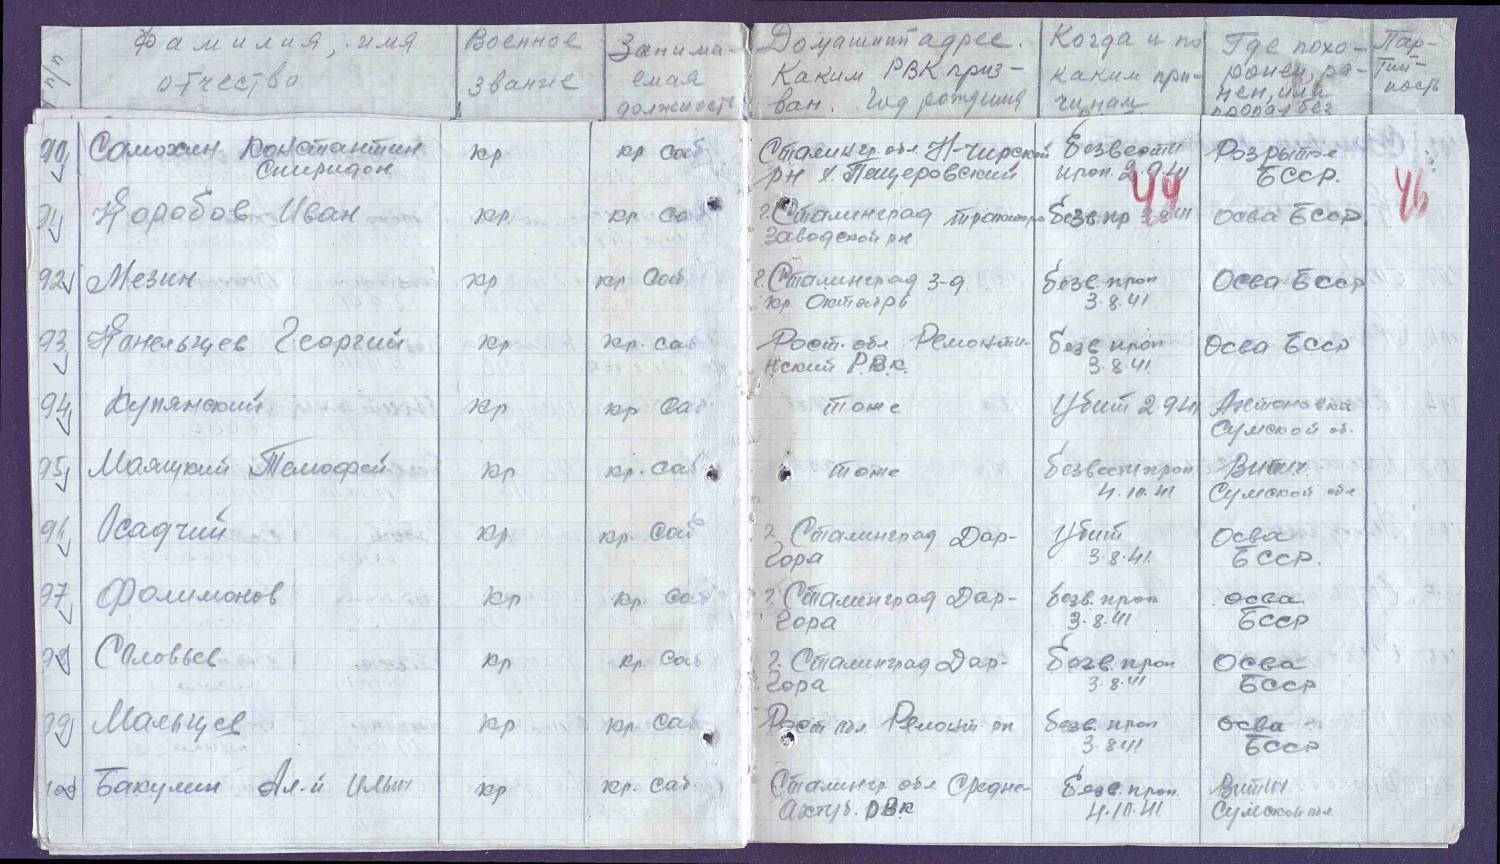 п/п Фамилия, имя отчество Военное звание Занимаемая должность Домашний адрес. Каким РВК призван. Год рождения Когда и по каким причинам Где похоронен, ранен, или пропал без Партийность
90 Самохин Константин Спиридон кр кр саб Сталингр обл Н-Чирской рн х. Пещеровский безвести проп. 2.9.41 Розрытое БССР.
44
46
91 Коробов Иван кр кр. саб г. Сталинград тракторо Заводской рн безв.пр 3.8.41 Осва БССР
92 Мезин кр кр саб г. Сталинград з-д кр. Октябрь безв. проп 3.8.41 Осва БССР
93 Канельцев Георгий кр кр. саб Рост. обл Ремонтинский РВК. безв проп 3.8.41 Осва БССР
94 Купянский кр кр саб тоже Убит 2.9.41 Антоновка Сумской об.
95 Маяцкий Темофей кр кр. саб тоже безвести проп 4.10.41 Витич Сумской обл
96 Осадчий кр кр. саб г. Сталинград Дар-Гора Убит 3.8.41. Осва БССР.
97 Фолимонов кр кр. саб г. Сталинград Дар-Гора безв. проп 3.8.41 осва БССР
98 Соловьев кр кр саб г. Сталинград Дар-Гора безв. проп 3.8.41 Осва БССР
99 Мальцев кр кр. саб Рост обл Ремонт рн безв. проп 3.8.41 осва БССР
100 Бакулин Ал-й Ильич кр кр. саб. Сталингр. обл Средне-Ахтуб. РВК безв. проп. 4.10.41 Витич Сумской обл